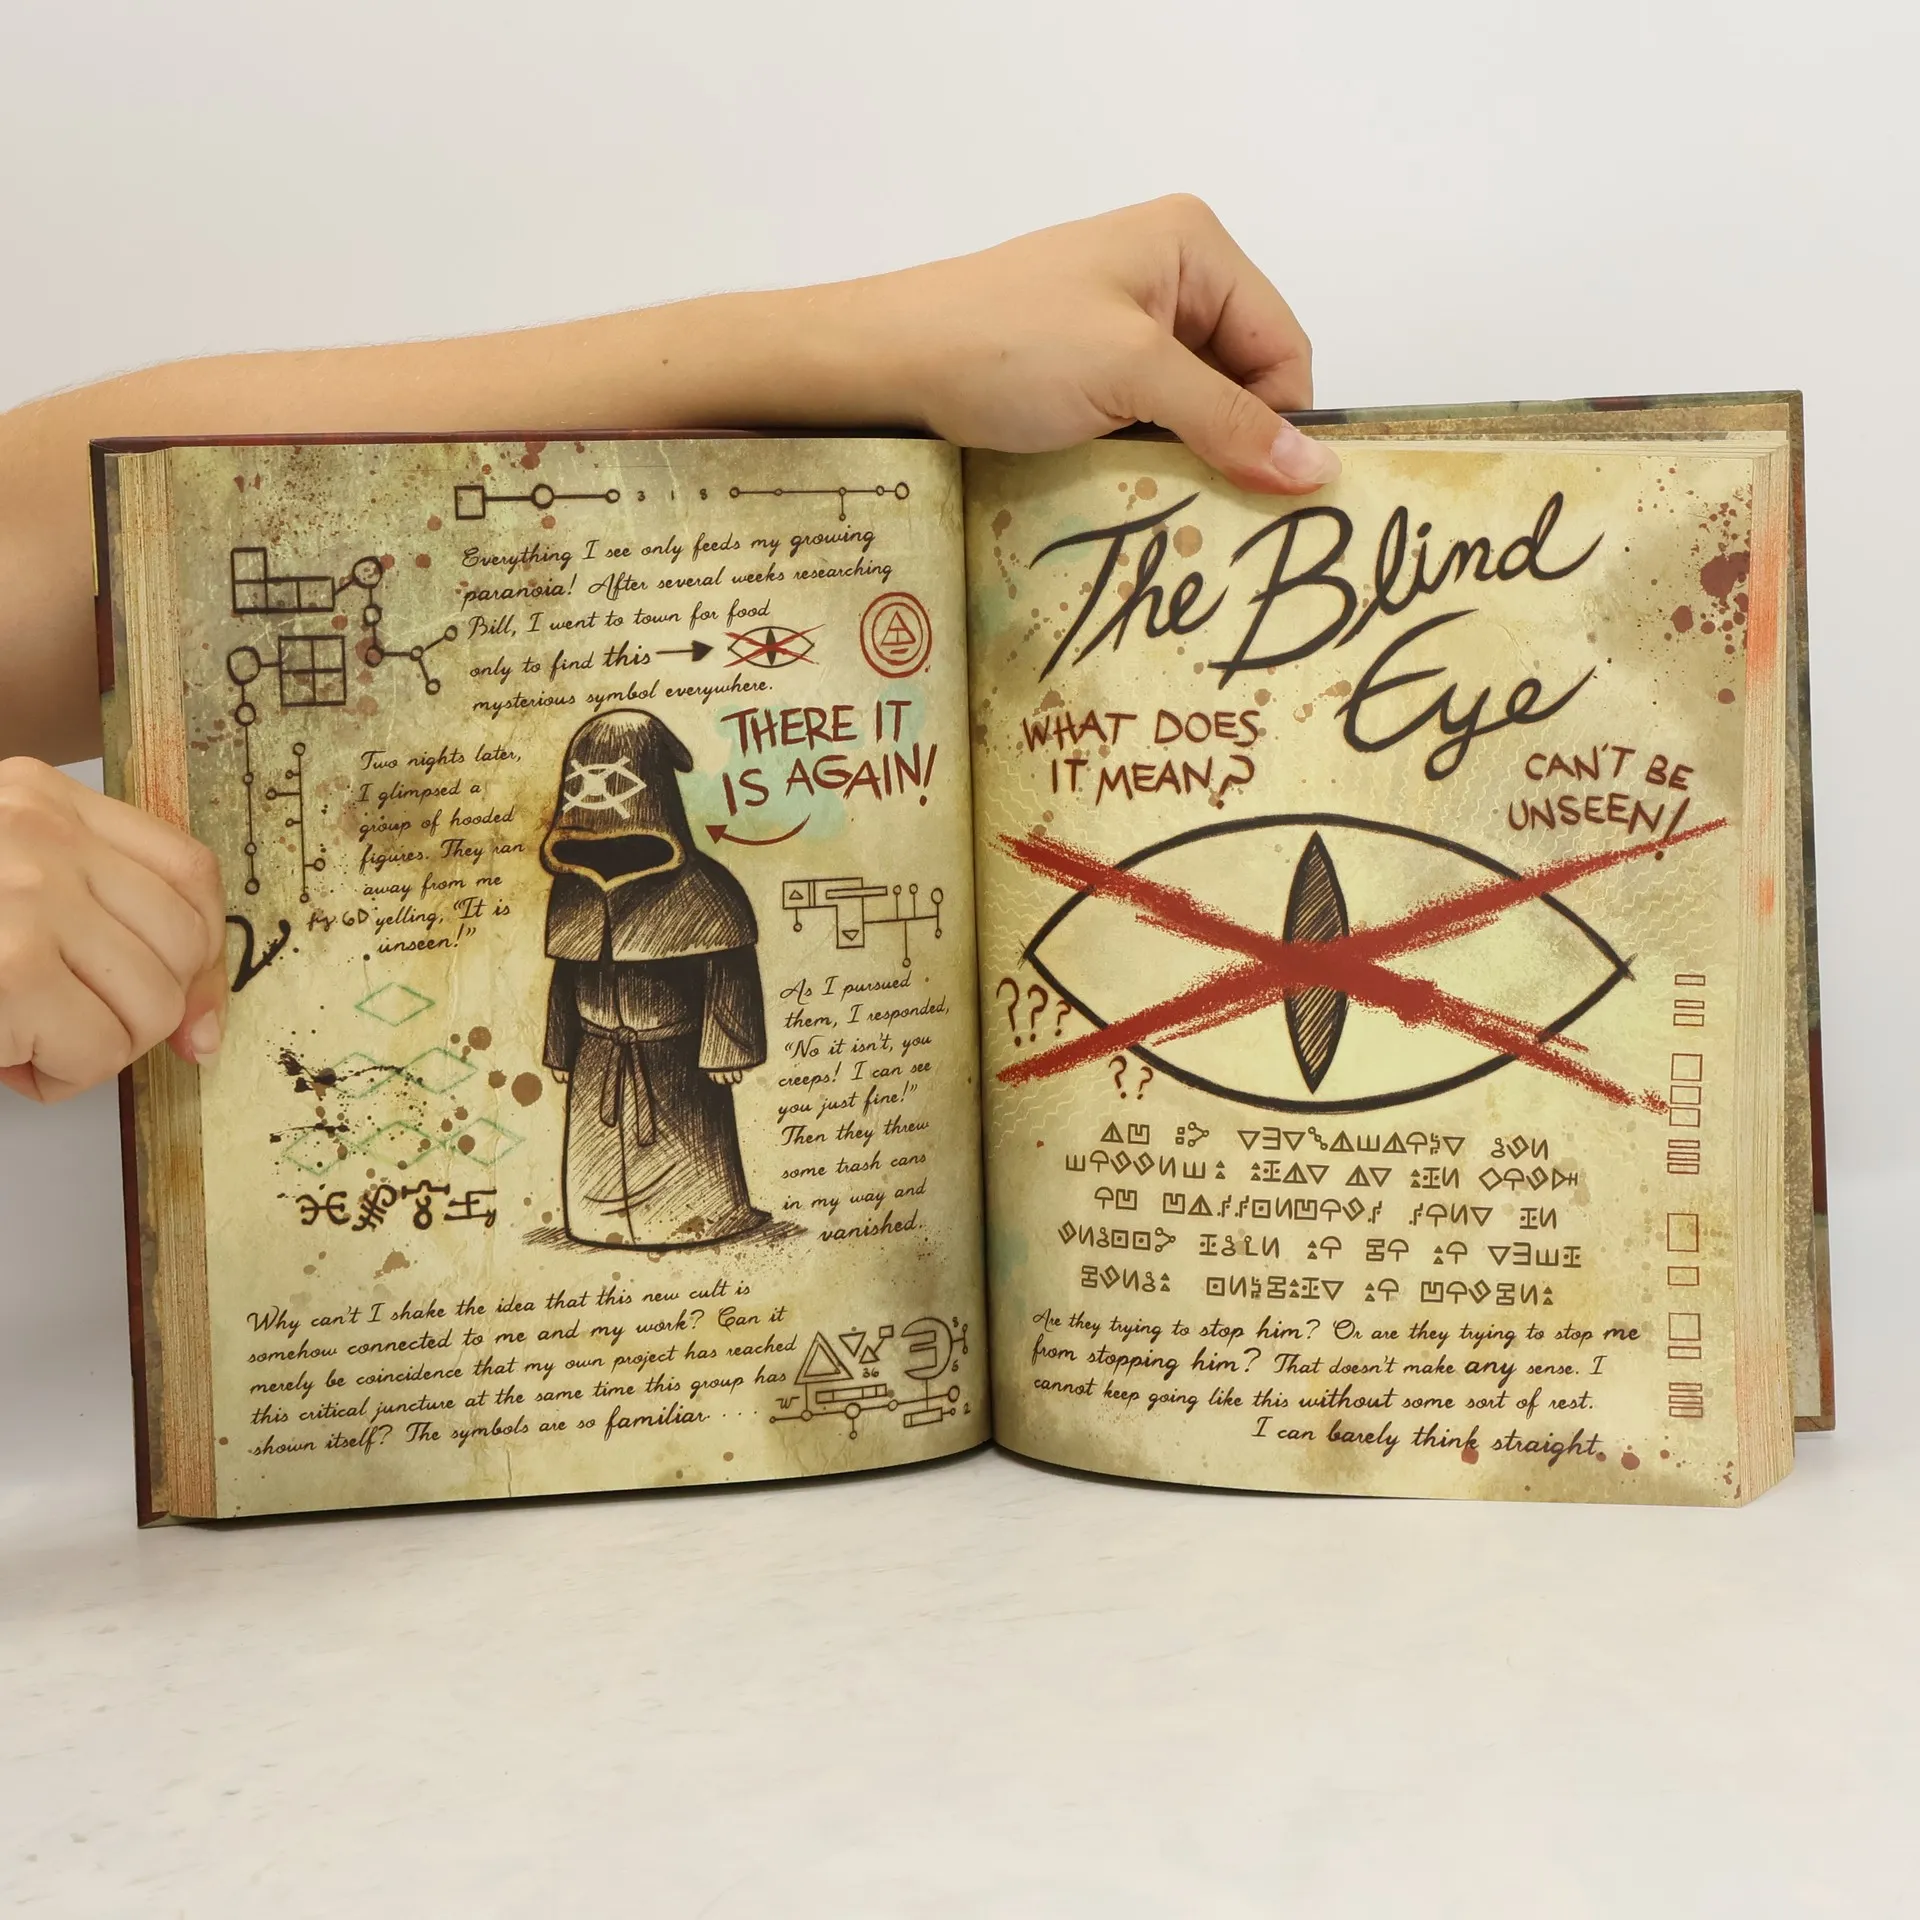 3 1 8
Everything I see only feeds my growing
paranoia! After several weeks researching
Bill, I went to town for food
only to find this
mysterious symbol everywhere.
THERE IT
IS AGAIN!
Two nights later,
I glimpsed a
group of hooded
figures. They ran
away from me
yelling, “It is
unseen!”
As I pursued
them, I responded,
“No it isn't, you
creeps! I can see
you just fine!”
Then they threw
some trash cans
in my way and
vanished.
Why can't I shake the idea that this new cult is
somehow connected to me and my work? Can it
merely be coincidence that my own project has reached
this critical juncture at the same time this group has
shown itself? The symbols are so familiar. . . .
36
The Blind
Eye
WHAT DOES
IT MEAN?
CAN'T BE
UNSEEN!
???
??
Are they trying to stop him? Or are they trying to stop me
from stopping him? That doesn't make any sense. I
cannot keep going like this without some sort of rest.
I can barely think straight.